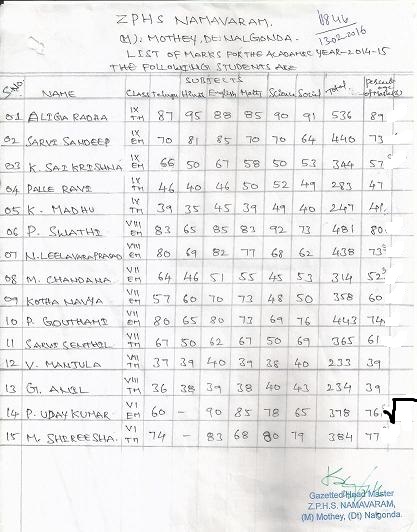 ZPHS NAMAVARAM.
(M); MOTHEY, Dt; NALGONDA.
13-02-2016
LIST OF MARKS FOR THE ACADAMIC YEAR-2014-15
THE FOLLOWING STUDENTS ARE
SUBJECTS
S.NO. NAME Class Telugu Hindi English Maths Science Social Total
01 ALIGIA RADHA IX TM 87 95 88 85 90 91 536 89
02 SARVI SANDEEP IX EM 70 81 85 70 70 64 440 73
03 K. SAI KRISHNA IX EM 66 50 67 58 50 53 344 57
04 PALLE RAVI IX TM 46 40 46 50 52 49 283 47
05 K. MADHU IX TM 39 35 45 39 49 40 247 41
06 P. SWATHI VIII EM 83 65 85 83 92 73 481 80
07 N. LEELAVARAPRASAD VIII EM 80 69 82 77 68 62 438 73
08 M. CHANDANA VIII EM 64 46 51 55 45 53 314 52
09 KOTHA NAVYA VIII EM 57 60 70 73 48 50 358 60
10 P. GOUTHAMI VIII EM 80 65 80 73 69 76 443 74
11 SARVI SENTHIL VIII TM 67 50 62 67 50 69 365 61
12 V. MANTULA VIII TM 37 39 40 39 38 40 233 39
13 G. ANIL VIII TM 36 38 39 38 40 43 234 39
14 P. UDAY KUMAR VI EM 60 - 90 85 78 65 378 76
15 M. SHIREESHA. VI TM 74 - 83 68 80 79 384 77
Gazetted Head Master
Z.P.H.S. NAMAVARAM,
(M) Mothey, (Dt) Nalgonda.